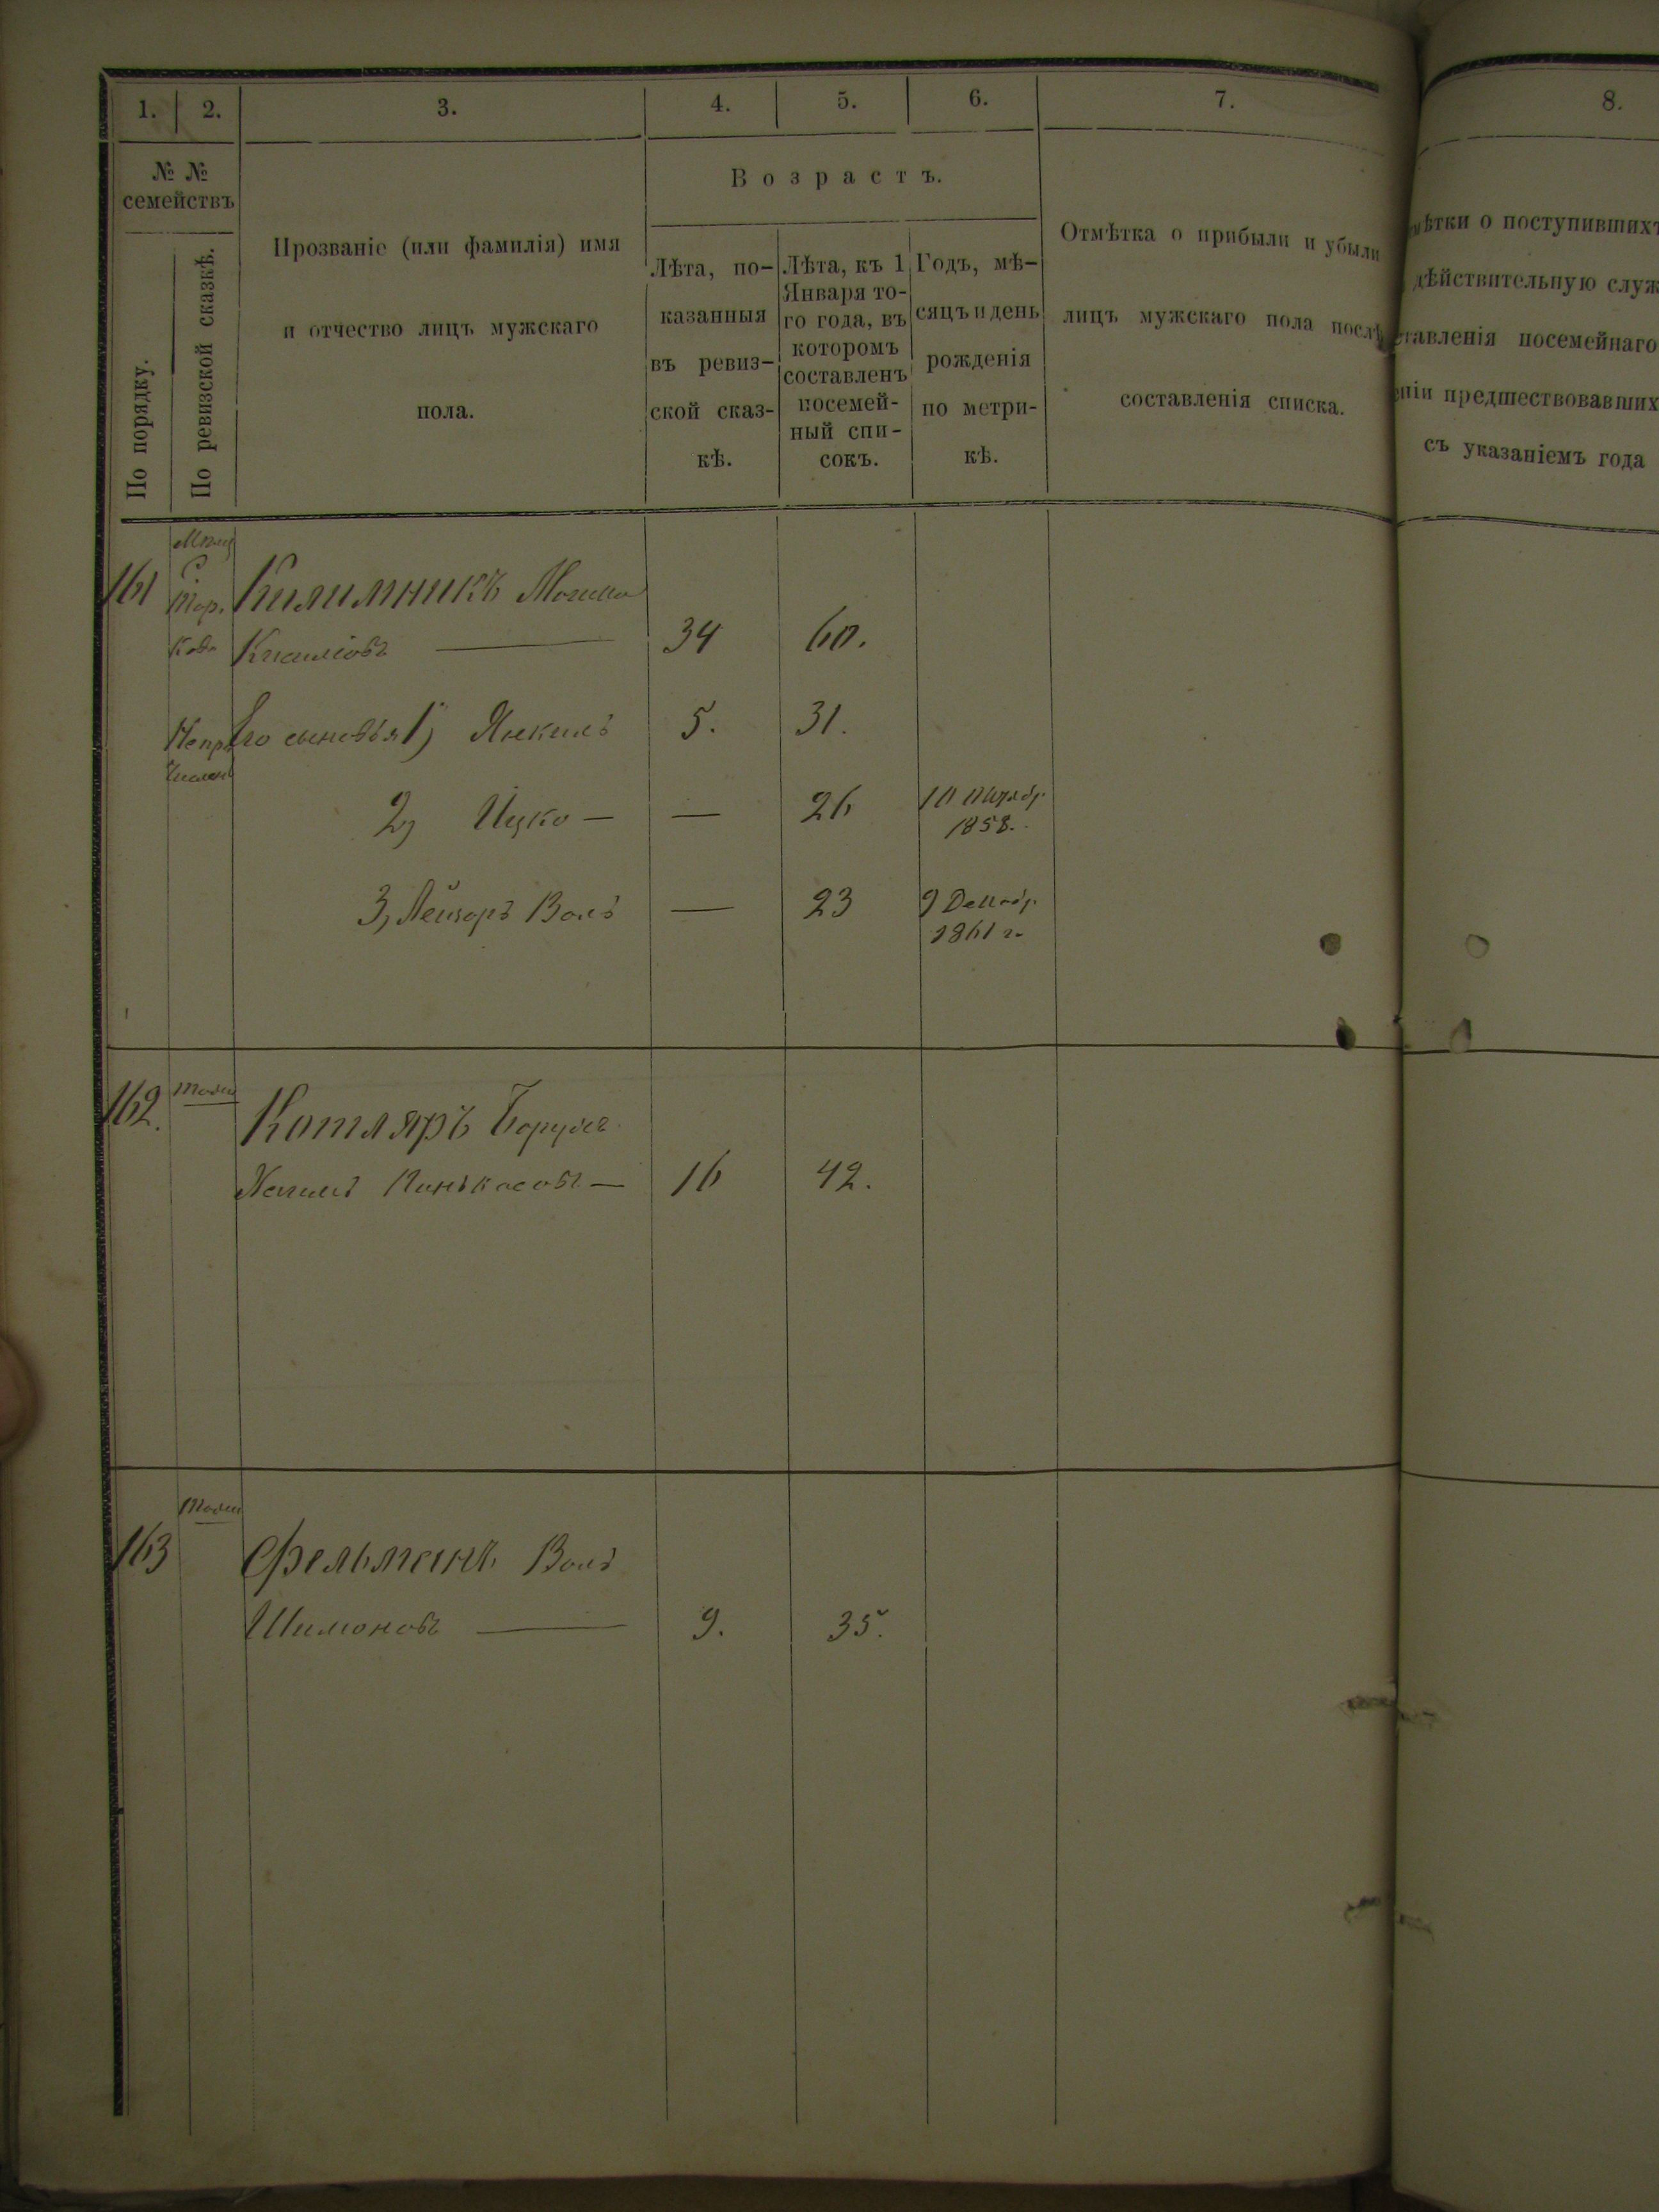 1. 2. 3. 4. 5. 6. 7. 8.
№ №
семействъ
По порядку.
По ревизской сказкѣ.
Прозваніе (или фамилія) имя
и отчество лицъ мужскаго
пола.
Возрастъ.
Лѣта, по-
казанныя
въ ревиз-
ской сказ-
кѣ.
Лѣта, къ 1
Января то-
го года, въ
которомъ
составленъ
посемей-
ный спи-
сокъ.
Годъ, мѣ-
сяцъ и день
рожденія
по метри-
кѣ.
Отмѣтка о прибыли и убыли
лицъ мужскаго пола послѣ
составленія списка.
ѣтки о поступившихъ
дѣйствительную служ
ставленія посемейнаго
ніи предшествовавших
съ указаніемъ года
161 Килимникъ Мошко
34 60.
Его сыновья 1) Янкель 5. 31.
2) Ицко — — 26 10
1858.
3) Лейзоръ Волъ — 23 9 Декабр.
1861 г.
162. Котляръ Борухъ
Пинькасовъ — 16 42.
163 Фельманъ Волъ
Шимоновъ — 9. 35.